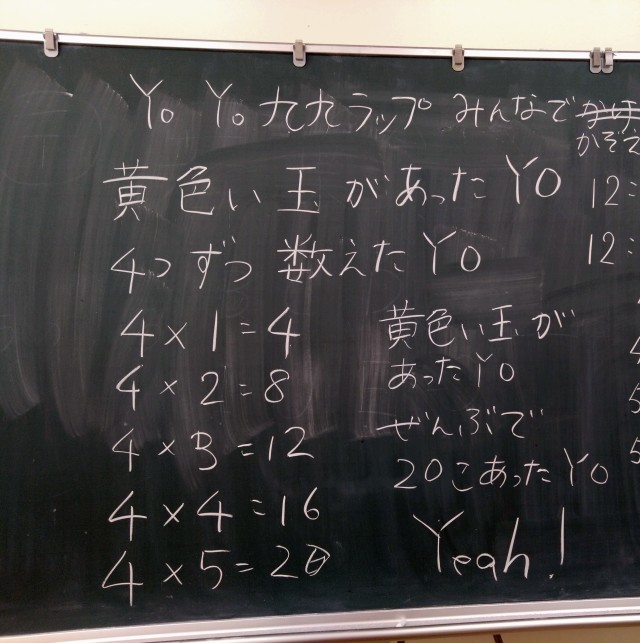 Yo Yo 九九ラップ みんなで
かぞえ
黄色い玉があったYO
4つずつ 数えたYO
4×1=4
4×2=8
4×3=12
4×4=16
4×5=20
黄色い玉が
あったYO
ぜんぶで
20こあったYO
Yeah!
12=
12=
4
5
5